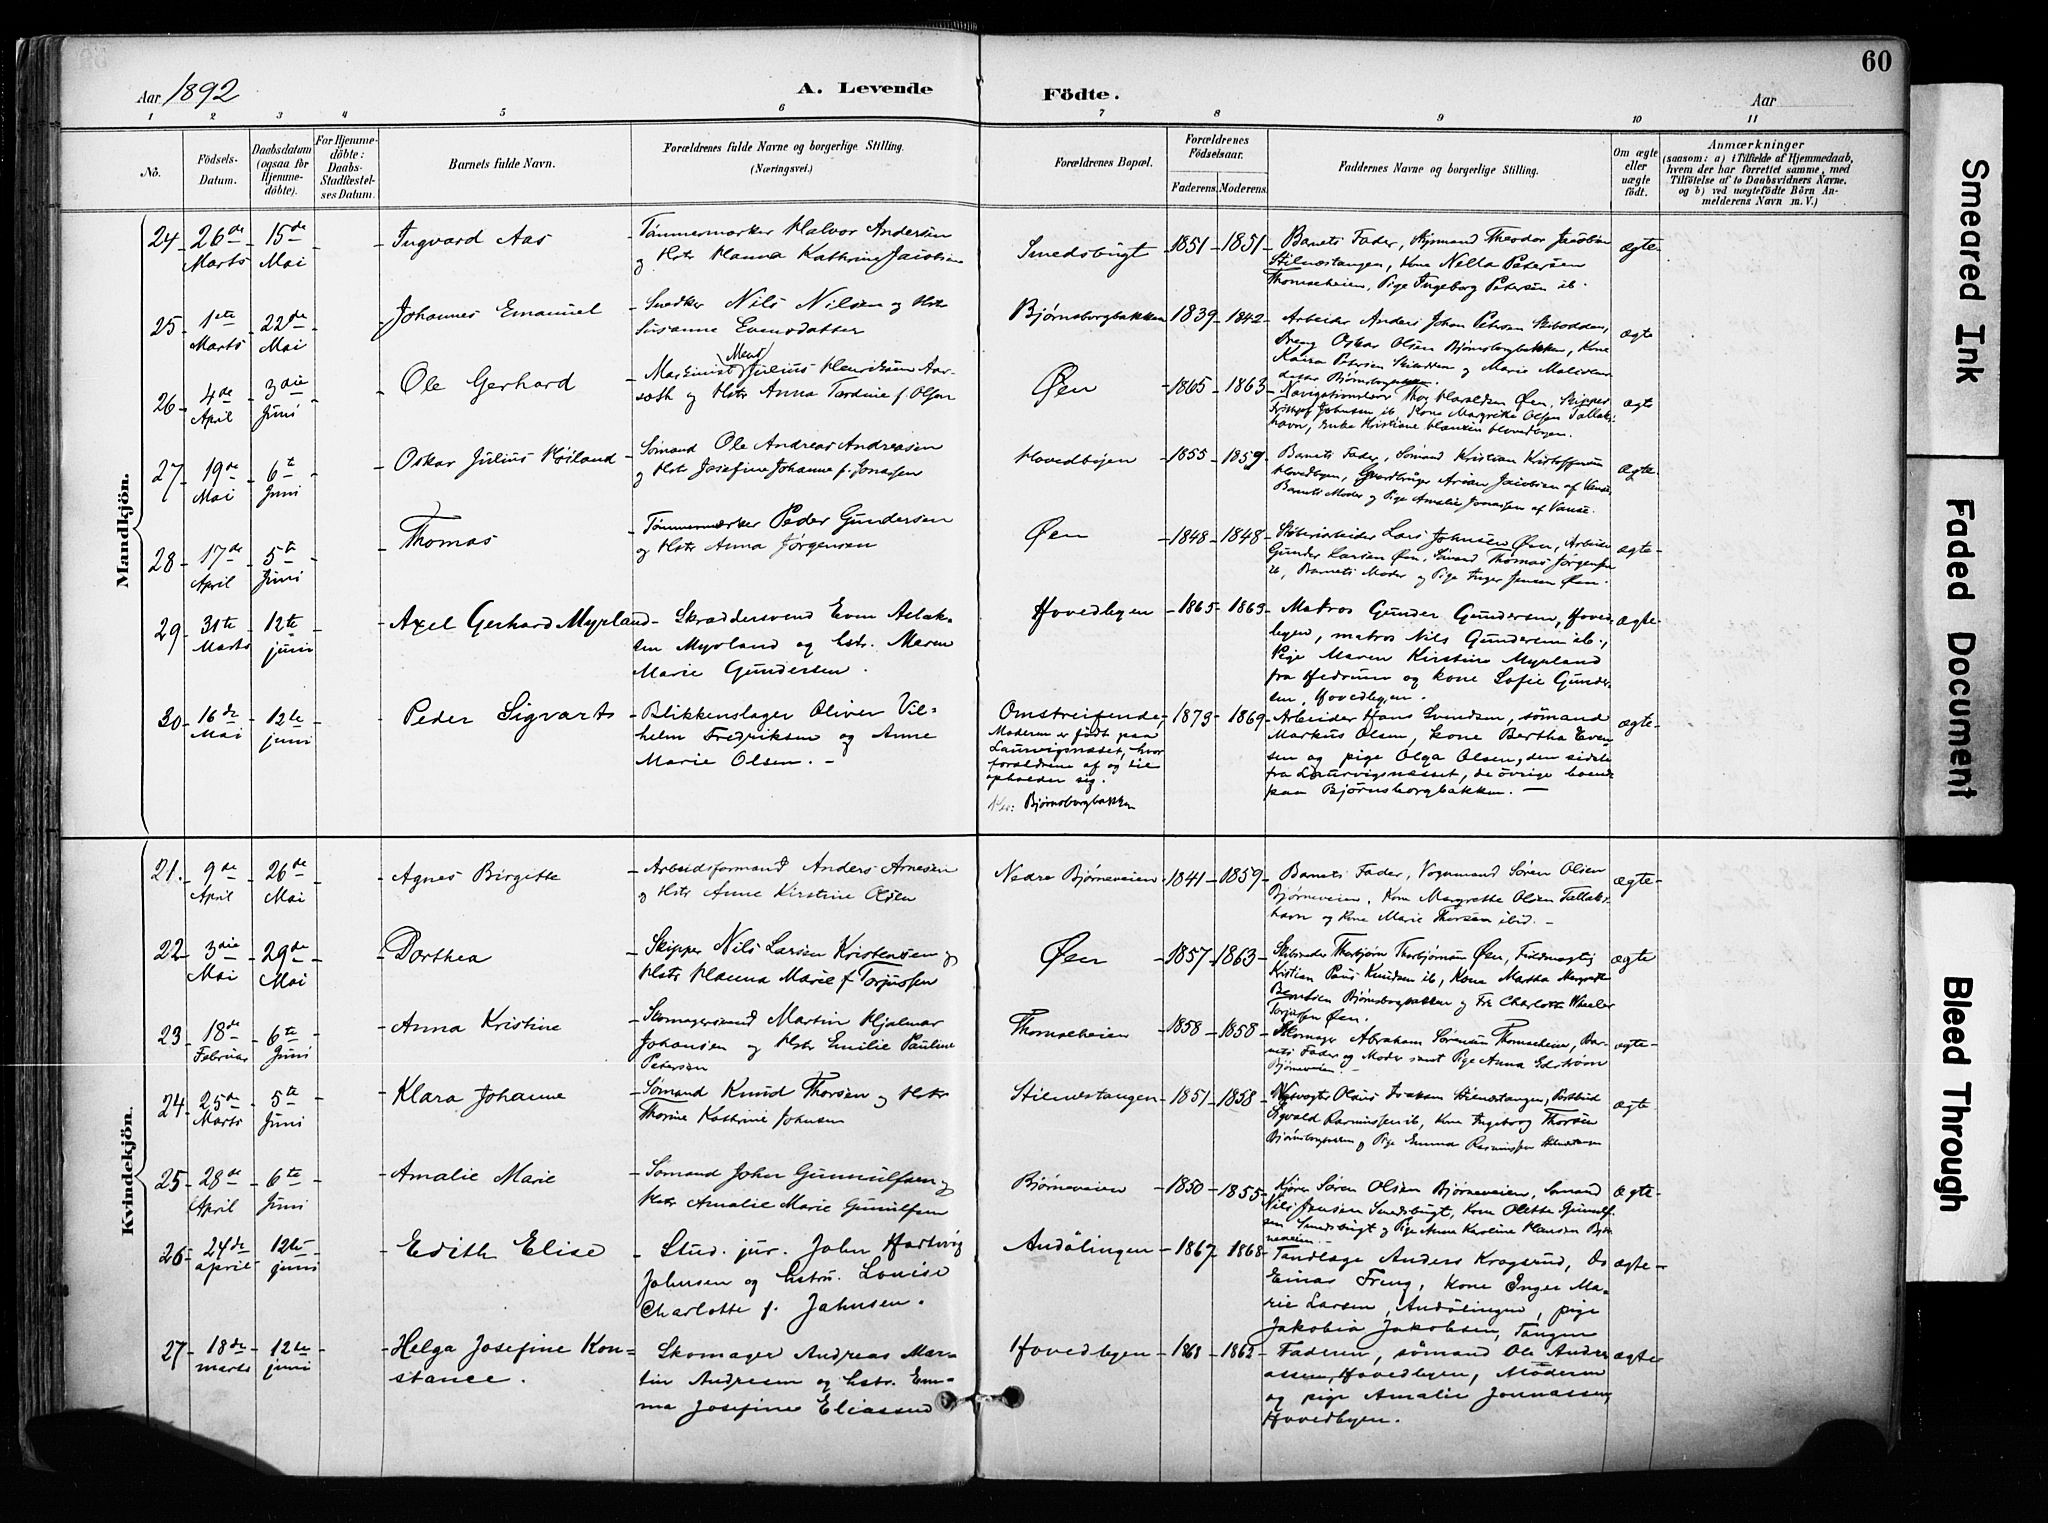 60
Aar 1892
A. Levende Födte.
Aar
1 2 3 4 5 6 7 8 9 10 11
No.
Födsels-Datum.
Daabsdatum (ogsaa for Hjemme-döbte).
For Hjemme-döbte: Daabs-Stadfæstel-ses Datum.
Barnets fulde Navn.
Forældrenes fulde Navne og borgerlige Stilling.
(Næringsvei.)
Forældrenes Bopæl.
Forældrenes Födselsaar.
Faderens. Moderens.
Faddernes Navne og borgerlige Stilling.
Om ægte eller uægte födt.
Anmærkninger
(saasom: a) i Tilfælde af Hjemmedaab,
hvem der har forrettet samme, med
Tilföielse af to Daabsvidners Navne,
og b) ved uægtefödte Börn An-
melderens Navn m. V.)
Mandkjön.
24 26de Marts 15de Mai Ingvard Aas
Tømmermærker Halvor Andersen
og Hstr Hanna Kathrine Jacobsen
Smedsbugt 1851 1851
Barnets Fader, Styrmand Theodor Jacobsen
Stilnestangen, Kone Nella Petersen
Thomseheien, Pige Ingeborg Petersen ib.
ægte
25 1ste Marts 22de Mai Johannes Emanuel
Snedker Nils Nilsen og Hstr
Susanne Evensdatter
Bjørnsborgbakken 1839 1842
Arbeider Anders Johan Petersen
Dreng Oskar Olsen Bjørnsborgbakken, Kone
ægte
26 4de April 3die Juni Ole Gerhard
Maskinist Julius Henriksen Aar-
seth og Hstr Anna Tardine f. Olsen
Øen 1865 1863
Navigationslærer Thor Haraldsen Øen, Skipper
Johnsen ib, Kone Margrethe Olsen Tallaks-
havn, Enke Kristiane Hovedbyen.
ægte
27 19de Mai 6te Juni Oskar Julius Høiland
Sømand Ole Andreas Andreasen
og Hstr Josefine Johanne f. Jonassen
Hovedbyen 1855 1859
Barnets Fader, Sømand Kristian Kristoffersen
Hovedbyen, Gaardbruger Jacobsen af Vanse,
Barnets Moder og Pige Amalie Jonassen af Vanse.
ægte
28 17de April 5te Juni Thomas
Tømmermærker Peder Gundersen
og Hstr Anna Jørgensen
Øen 1848 1848
Lars Johnsen Øen, Arbeider
Gunder Larsen Øen, Sømand Thomas Jørgensen
ib, Barnets Moder og Pige Inger Jensen Øen.
ægte
29 31te Marts 12te juni Axel Gerhard Myrland
Skræddersvend Even Aslak-
sen Myrland og hstr. Maren
Marie Gundersen.
Hovedbyen 1865 1863
Matros Gunder Gundersen, Hoved-
byen, matros Nils Gundersen ib.,
Pige Maren Kirstine Myrland
fra Hedrum og kone Sofie Gunder-
sen, Hovedbyen.
ægte
30 16de Mai 12te juni Peder Sigvart
Blikkenslager Oliver Vil-
helm Fredriksen og Anne
Marie Olsen.
Omstreifende,
Moderen er født paa
Laurvigsnæset, hvor
forældrene af og til
opholder sig.
Bjørnsborgbakken
1873 1869
Arbeider Hans Svendsen, sømand
Markus Olsen, kone Bertha Even-
sen og pige Olga Olsen, den sidste
fra Laurvigsnæsset, de øvrige boende
paa Bjørnsborgbakken.
ægte
Kvindekjön.
21. 9de April 26de Mai Agnes Birgitte
Arbeidsformand Anders Arnesen
og Hstr Anne Kirstine Olsen
Nedre Bjørneveien 1841 1859
Barnets Fader, Vognmand Søren Olsen
Bjørneveien, Kone Margrethe Olsen Tallaks-
havn og Kone Marie Thorsen ibid.
ægte
22 3die Mai 29de Mai Dorthea
Skipper Nils Larsen Kristensen og
Hstr Hanna Marie f Torjussen
Øen 1857 1863
Skibsreder Thorbjørn Thorbjørnsen Øen, Fuldmægtig
Kristian Paus Knudsen ib, Kone Martha Margrethe
Berntsen Bjørnsborgbakken og Frk Charlotte Wheeler
Torjussen Øen.
ægte
23 18de Februar 6te Juni Anna Kristine
Skomagersvend Martin Hjalmar
Johansen og Hstr Emilie Pauline
Petersen
Thomseheien 1858 1858
Skomager Abraham Sørensen Thomseheien, Bar-
nets Fader og Moder samt Pige Anna Edstrøm
Bjørneveien.
ægte
24 25de Marts 5te Juni Klara Johanne
Sømand Knud Thorsen og Hstr
Thorine Kathrine Johnsen
Stilnestangen 1851 1858
Olaus Isaksen Stilnestangen, Postbud
Sigvald Rasmussen ib, Kone Ingeborg Thorsen
Bjørnsborgbakken og Pige Emma Rasmussen
ægte
25 28de April 6te Juni Amalie Marie
Sømand John Gunnulfsen og
Hstr Amalie Marie Gunulfsen
Bjørneveien 1850 1855
Kjører Søren Olsen Bjørneveien, Sømand
Nils Jensen Smedsbugt, Kone Olette Gunulf-
sen Smedsbugt og Pige Anne Karoline Hansen Bjør-
neveien.
ægte
26 24de april 12te juni Edith Elise
Stud. jur. John Hartvig
Johnsen og hstru. Louise
Charlotte f. Jahnsen.
Andølingen 1867 1868
Tandlæge Anders Kragsrud, Os
Einar Freng, kone Inger Ma-
rie Larsen, Andølingen, pige
Jakobia Jakobsen, Tangen
ægte
27 18de marts 12te juni Helga Josefine Kon-
stance.
Skomager Andreas Mar-
tin Andresen og hstr. Em-
ma Josefine Eliassen
Hovedbyen 1863 1862
Faderen, sømand Ole Andre-
assen, Hovedbyen, Moderen
og pige Amalie Jonnassen,
Hovedbyen.
ægte
Smeared Ink
Faded Document
Bleed Through